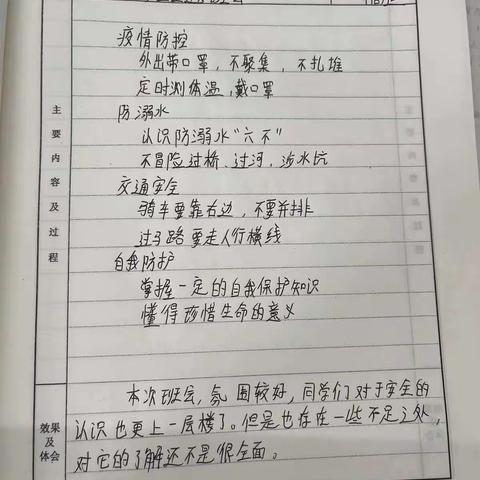 疫情防控
外出带口罩，不聚集，不扎堆
定时测体温，戴口罩
防溺水
认识防溺水"六不"
不冒险过桥、过河，涉水坑
交通安全
骑车要靠右边，不要并排
过马路要走人行横线
自我防护
掌握一定的自我保护知识
懂得珍惜生命的意义
主要内容及过程
本次班会，氛围较好，同学们对于安全的
认识也更上一层楼了。但是也存在一些不足之处，
对它的了解还不是很全面。
效果
及
体会